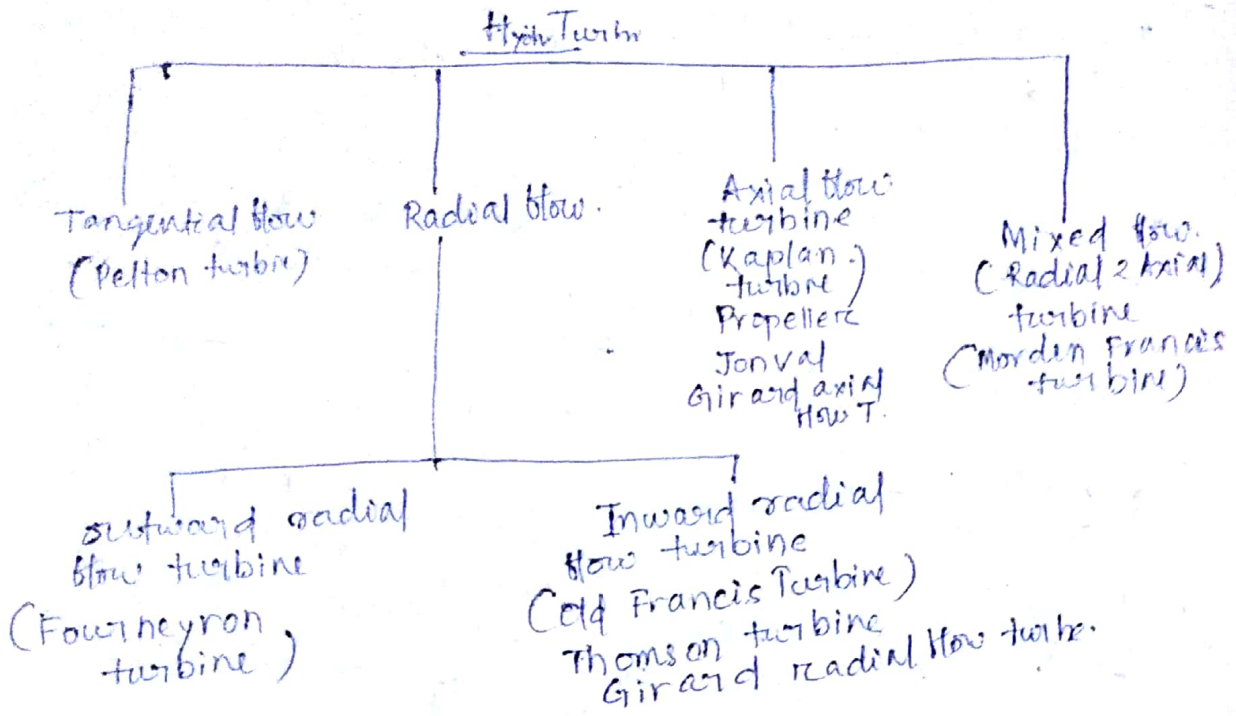 Hydr Turbn
Tangential flow
(Pelton turbine)
Radial flow.
Axial flow
turbine
(Kaplan
turbine)
Propeller
Jonval
Girard axial
flow T.
Mixed flow.
(Radial & Axial)
turbine
(Morden Francis
turbine)
outward radial
flow turbine
(Fourneyron
turbine)
Inward radial
flow turbine
(Old Francis Turbine)
Thomson turbine
Girard radial flow turbe.